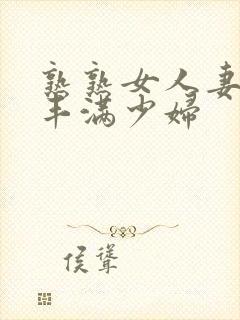 熟熟女人妻
丰满少婦
侯聳